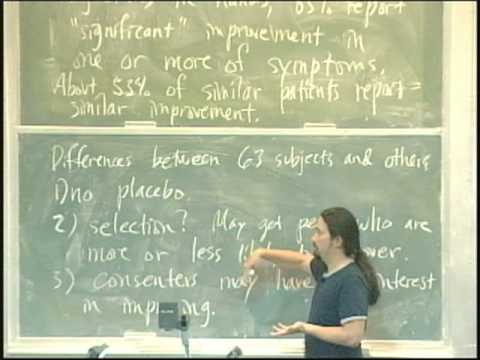 in hands, 65% report
"significant" improvement in
one or more of symptoms.
About 53% of similar patients report
similar improvement.
Differences between 63 subjects and others
1) no placebo
2) selection? May get who are
more or less
3) consenters may have interest
in improving.